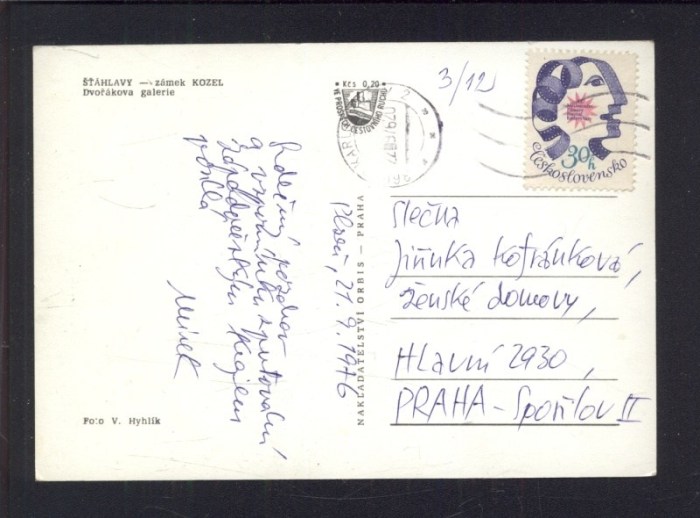 ŠŤÁHLAVY — zámek KOZEL
Dvořákova galerie
Kčs 0,20
VE PROSPĚCH CESTOVNÍHO RUCHU
3/12
30h
Československo
Srdečný pozdrav
a vzpomínku z putování
Západočeským krajem
posílá
Mirek
Plzeň, 21. 9. 1976
NAKLADATELSTVÍ ORBIS — PRAHA
slečna
Jiřinka Kofránková,
ženské domovy,
Hlavní 2930,
PRAHA-Spořilov II
Foto V. Hyhlík